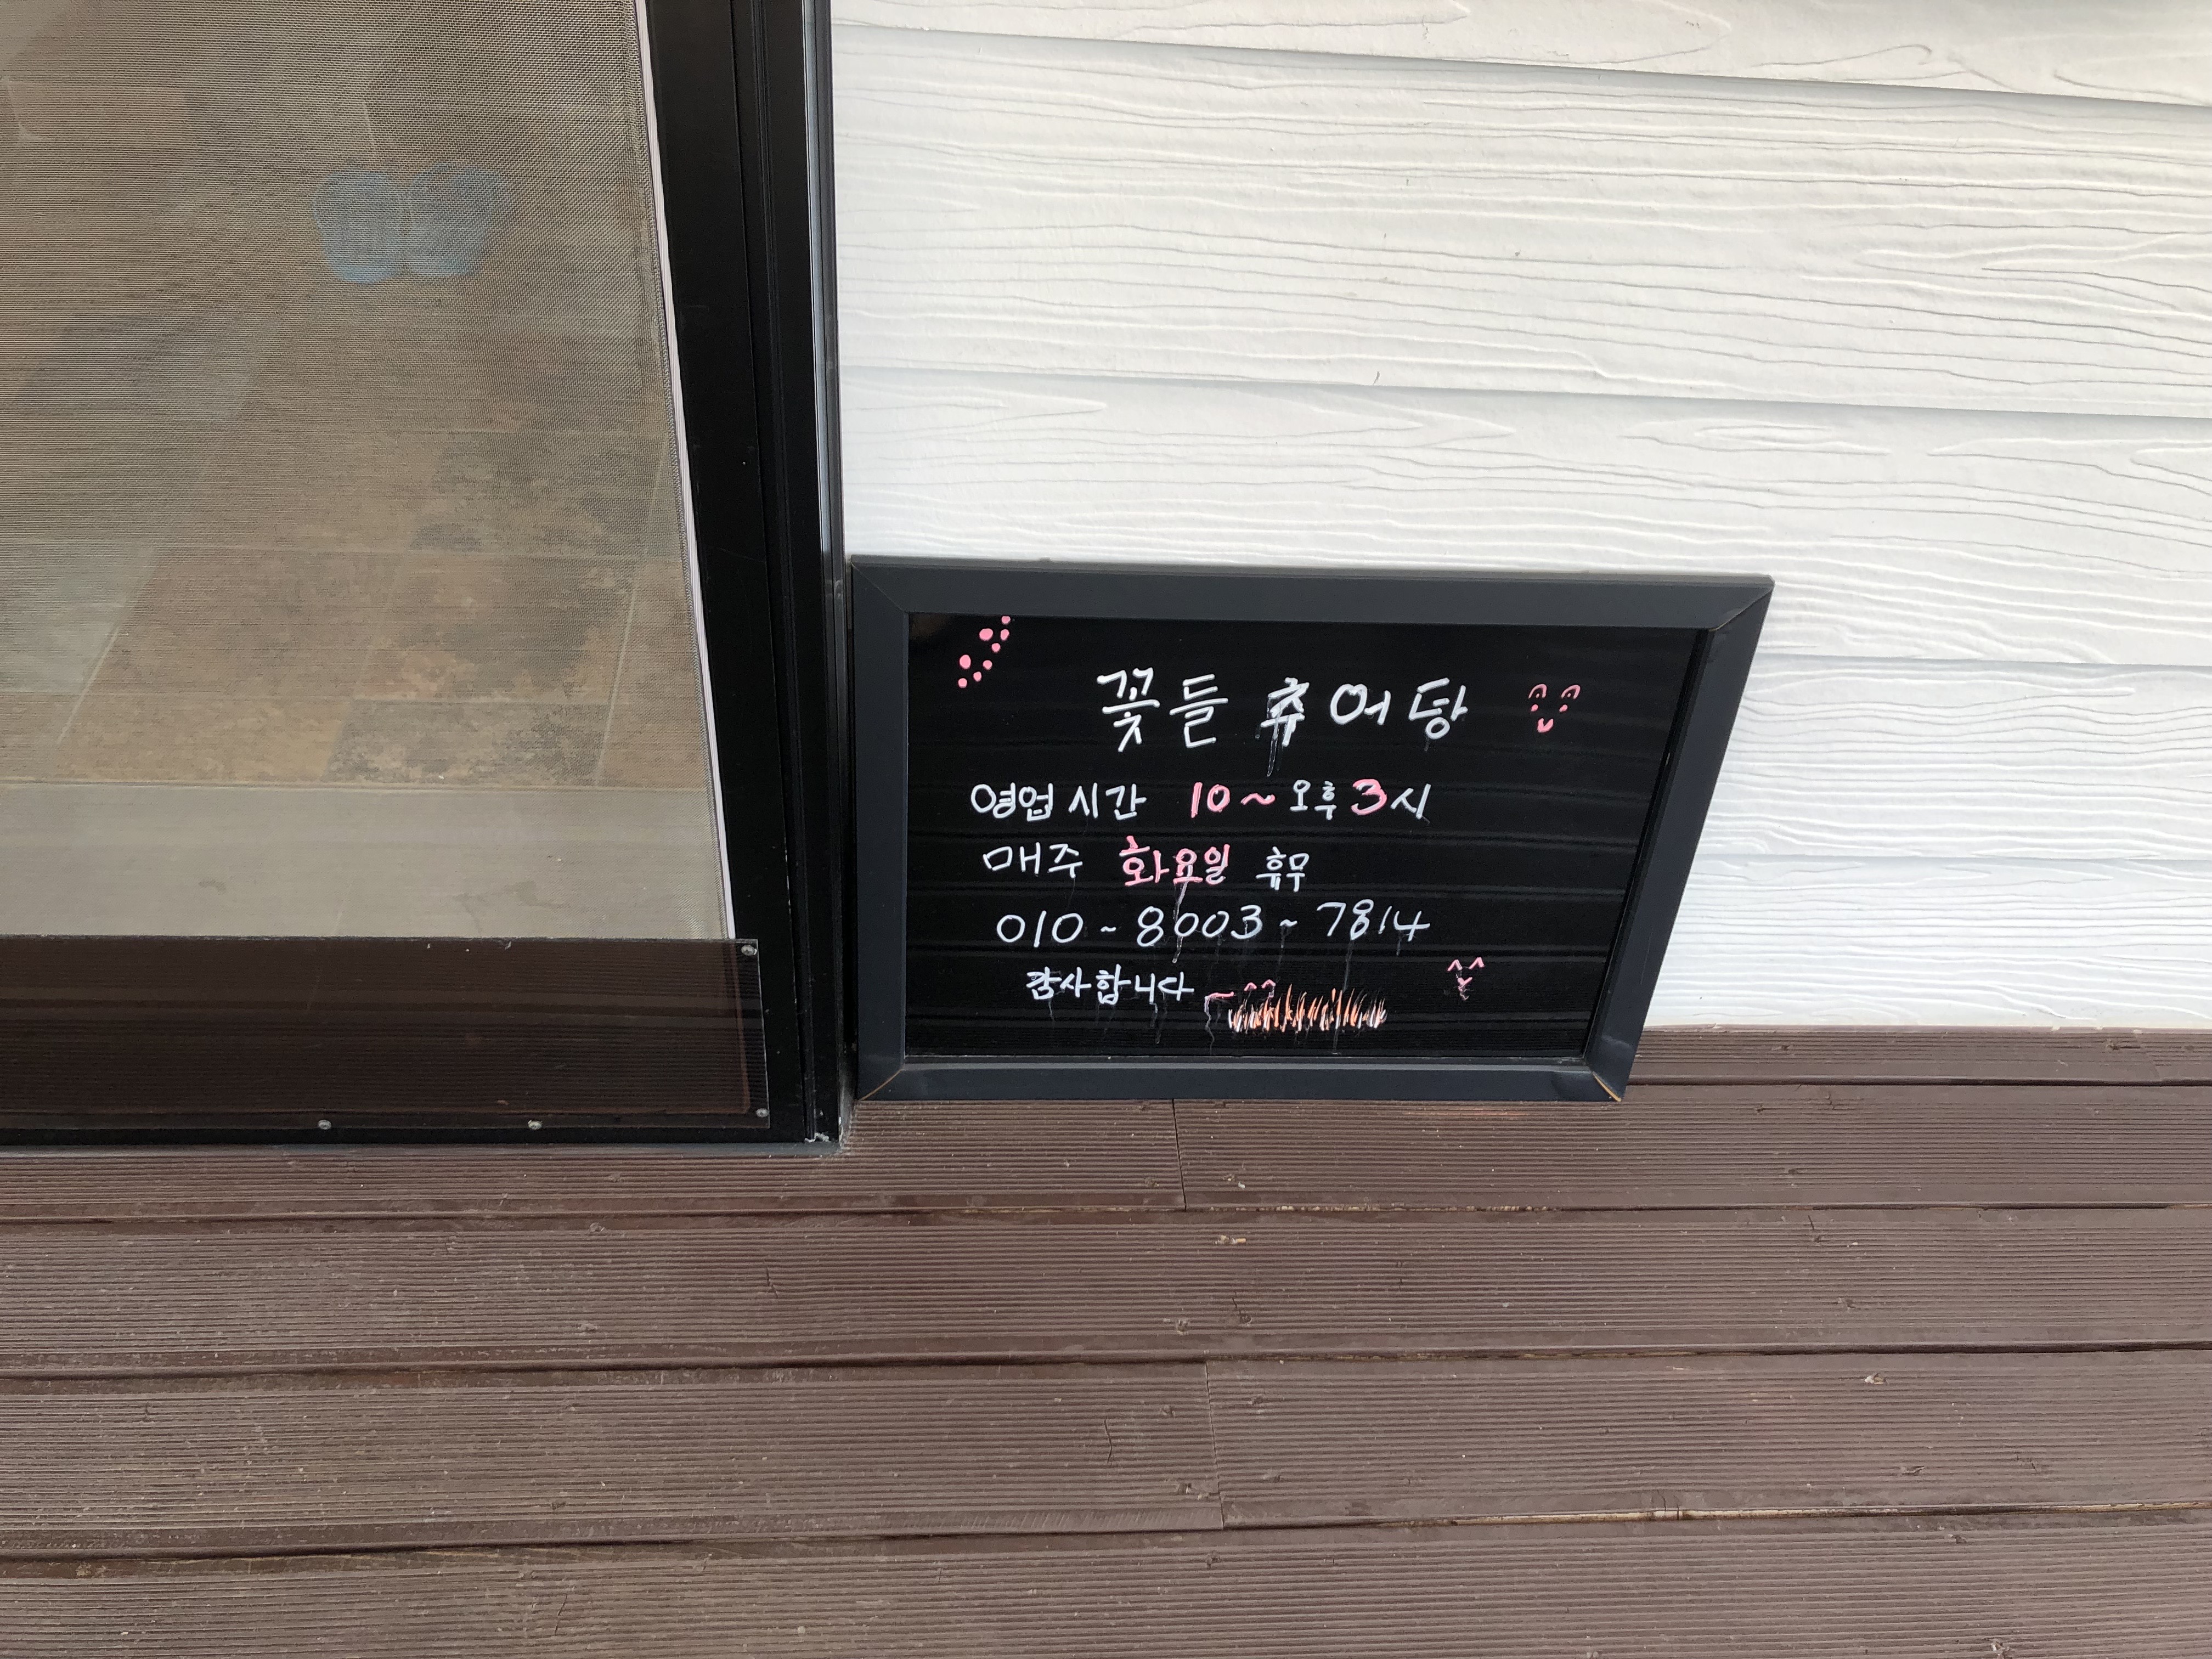 꽃들 추어탕
영업시간 10~오후 3시
매주 화요일 휴무
010~8003~7814
감사합니다